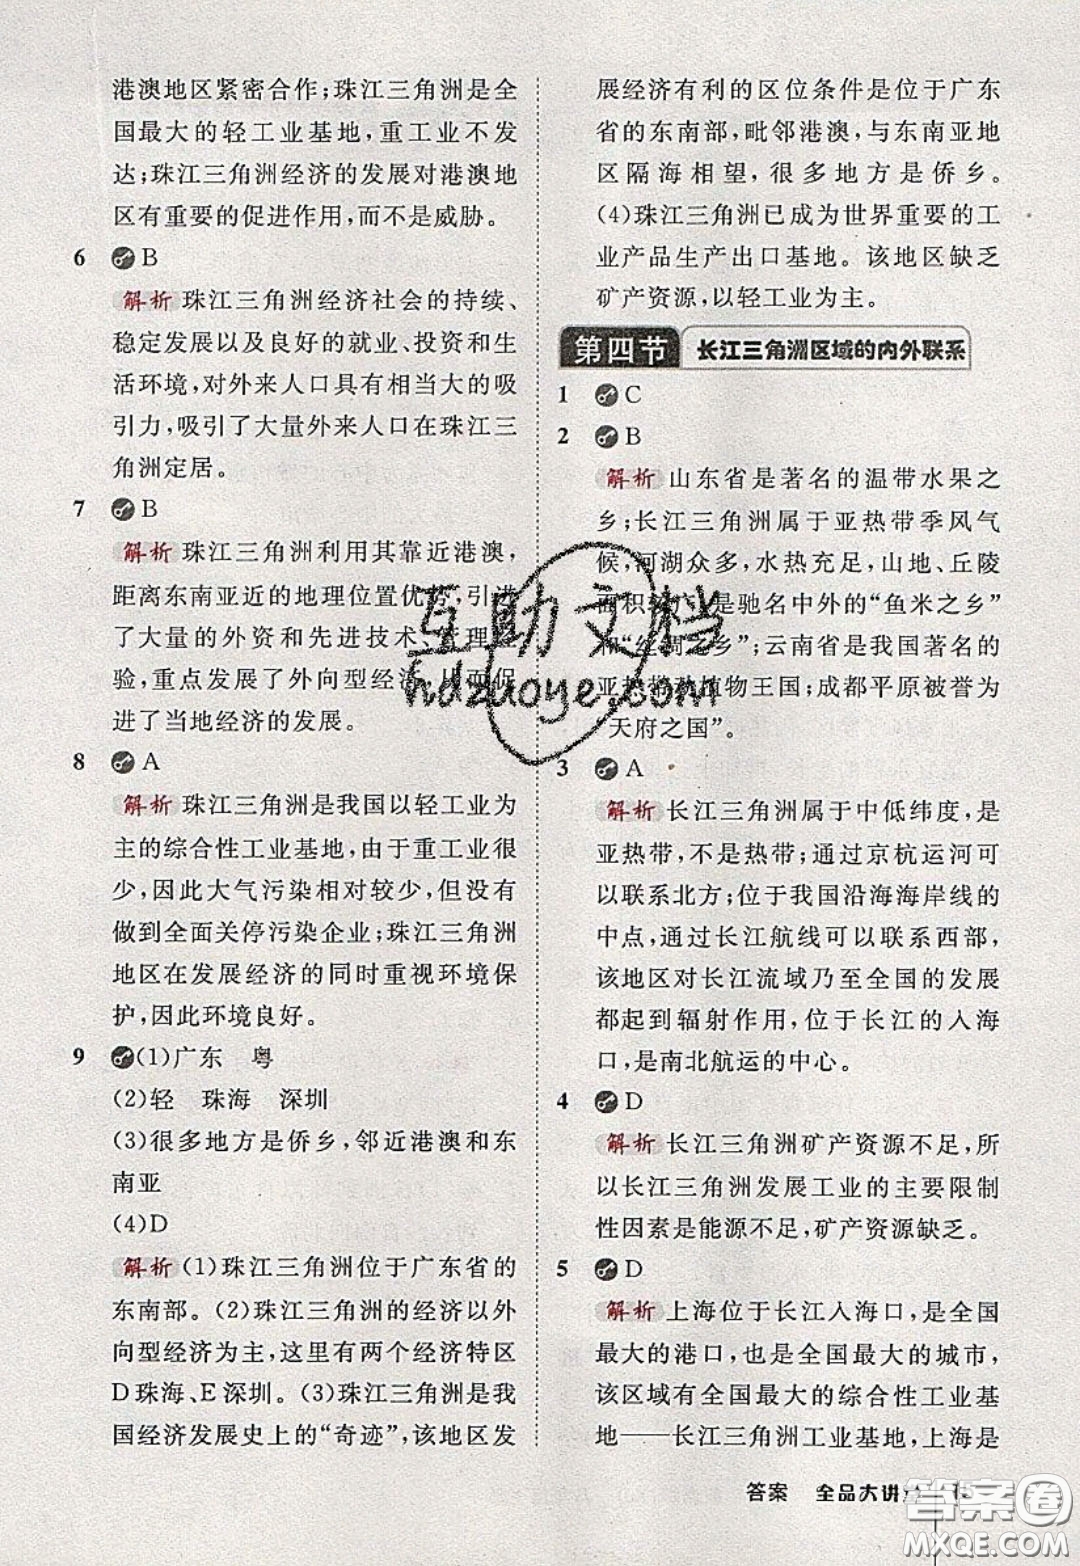 港澳地区紧密合作;珠江三角洲是全
国最大的轻工业基地,重工业不发
达;珠江三角洲经济的发展对港澳地
区有重要的促进作用,而不是威胁。
6 B
解析 珠江三角洲经济社会的持续、
稳定发展以及良好的就业、投资和生
活环境,对外来人口具有相当大的吸
引力,吸引了大量外来人口在珠江三
角洲定居。
7 B
解析 珠江三角洲利用其靠近港澳,
距离东南亚近的地理位置优势,引进
了大量的外资和先进技术、管理经
验,重点发展了外向型经济,从而促
进了当地经济的发展。
8 A
解析 珠江三角洲是我国以轻工业为
主的综合性工业基地,由于重工业很
少,因此大气污染相对较少,但没有
做到全面关停污染企业;珠江三角洲
地区在发展经济的同时重视环境保
护,因此环境良好。
9 (1)广东 粤
(2)轻 珠海 深圳
(3)很多地方是侨乡,邻近港澳和东
南亚
(4)D
解析 (1)珠江三角洲位于广东省的
东南部。(2)珠江三角洲的经济以外
向型经济为主,这里有两个经济特区
D珠海、E深圳。(3)珠江三角洲是我
国经济发展史上的“奇迹”,该地区发
展经济有利的区位条件是位于广东
省的东南部,毗邻港澳,与东南亚地
区隔海相望,很多地方是侨乡。
(4)珠江三角洲已成为世界重要的工
业产品生产出口基地。该地区缺乏
矿产资源,以轻工业为主。
第四节 长江三角洲区域的内外联系
1 C
2 B
解析 山东省是著名的温带水果之
乡;长江三角洲属于亚热带季风气
候,河湖众多,水热充足,山地、丘陵
面积较小,是驰名中外的“鱼米之乡”
和“丝绸之乡”;云南省是我国著名的
亚热带动植物王国;成都平原被誉为
“天府之国”。
3 A
解析 长江三角洲属于中低纬度,是
亚热带,不是热带;通过京杭运河可
以联系北方;位于我国沿海海岸线的
中点,通过长江航线可以联系西部,
该地区对长江流域乃至全国的发展
都起到辐射作用,位于长江的入海
口,是南北航运的中心。
4 D
解析 长江三角洲矿产资源不足,所
以长江三角洲发展工业的主要限制
性因素是能源不足,矿产资源缺乏。
5 D
解析 上海位于长江入海口,是全国
最大的港口,也是全国最大的城市,
该区域有全国最大的综合性工业基
地——长江三角洲工业基地,上海是
答案 全品大讲堂
互助文档
hdzuoye.com
答案圈
MXQE.COM